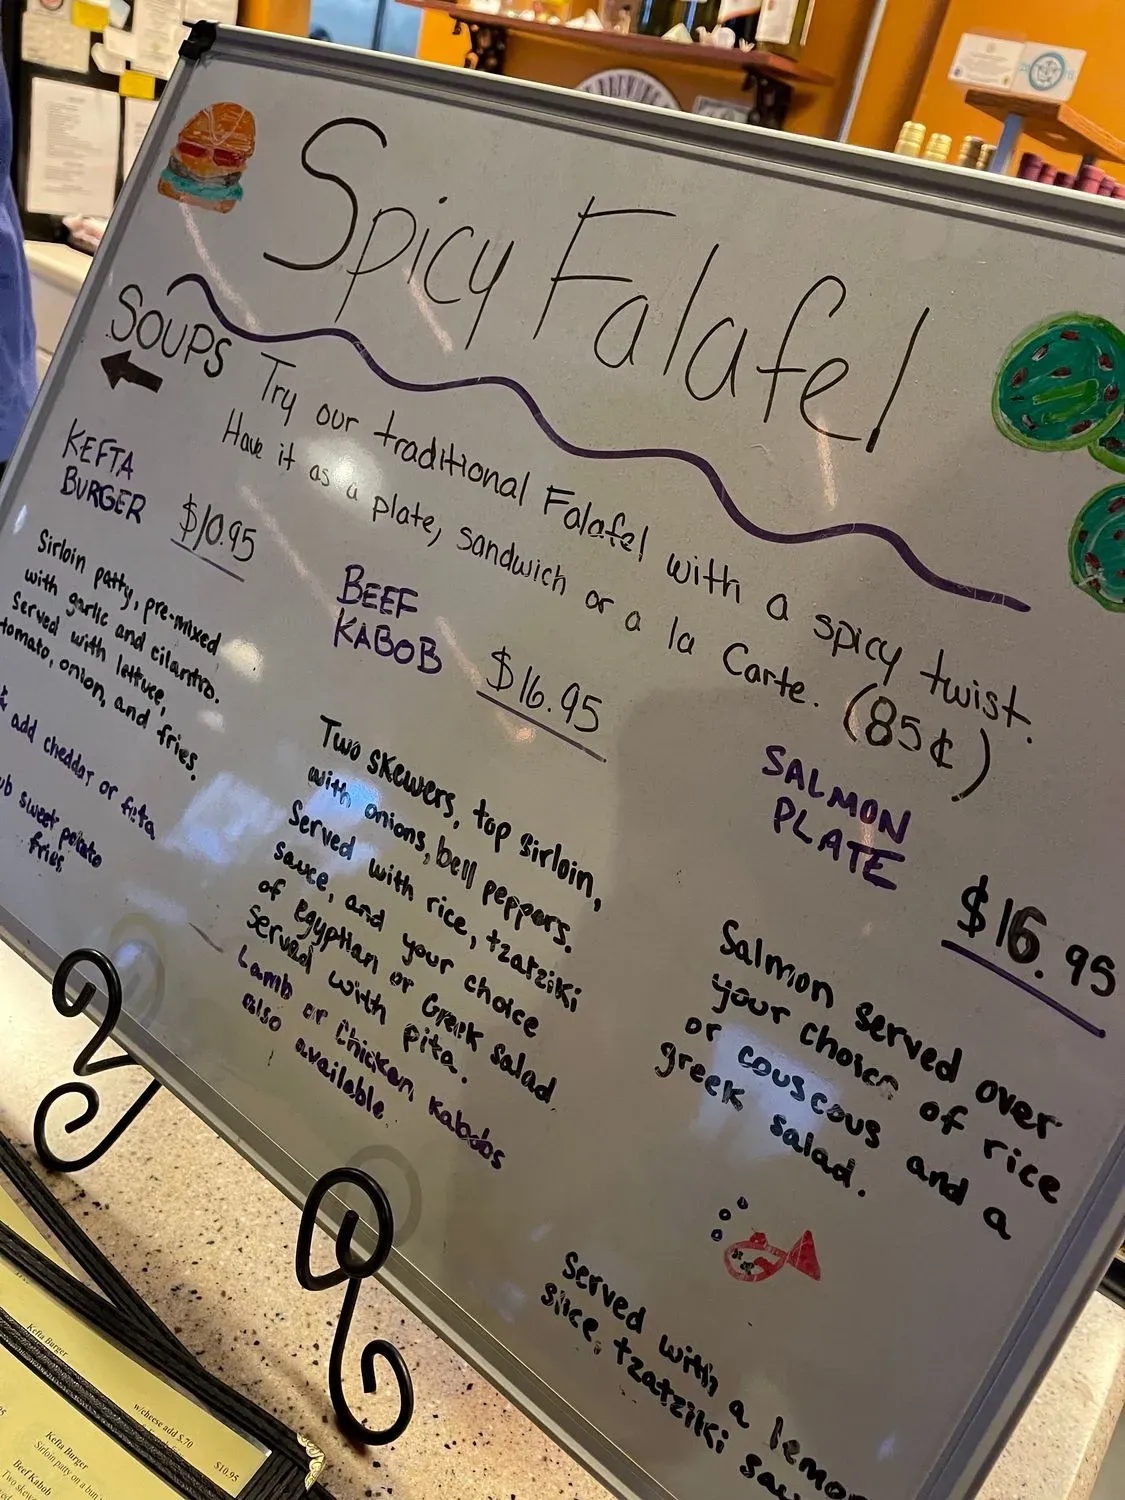 Spicy Falafel
SOUPS
Try our traditional Falafel with a spicy twist.
Have it as a plate, sandwich or a la Carte. (85¢)
KEFTA
BURGER
$10.95
Sirloin patty, pre-mixed
with garlic and cilantro.
Served with lettuce,
tomato, onion, and fries.
add cheddar or feta
sweet potato
fries
BEEF
KABOB
$16.95
Two skewers, top sirloin,
with onions, bell peppers.
Served with rice, tzatziki
sauce, and your choice
of egyptian or Greek salad
Served with pita.
Lamb or Chicken Kabobs
also available.
SALMON
PLATE
$16.95
Salmon served over
your choice of rice
or couscous and a
greek salad.
Served with a lemon
slice, tzatziki
Kefta Burger
w/cheese add $.70
$10.95
Kefta Burger
Sirloin patty on a bun
Beef Kabob